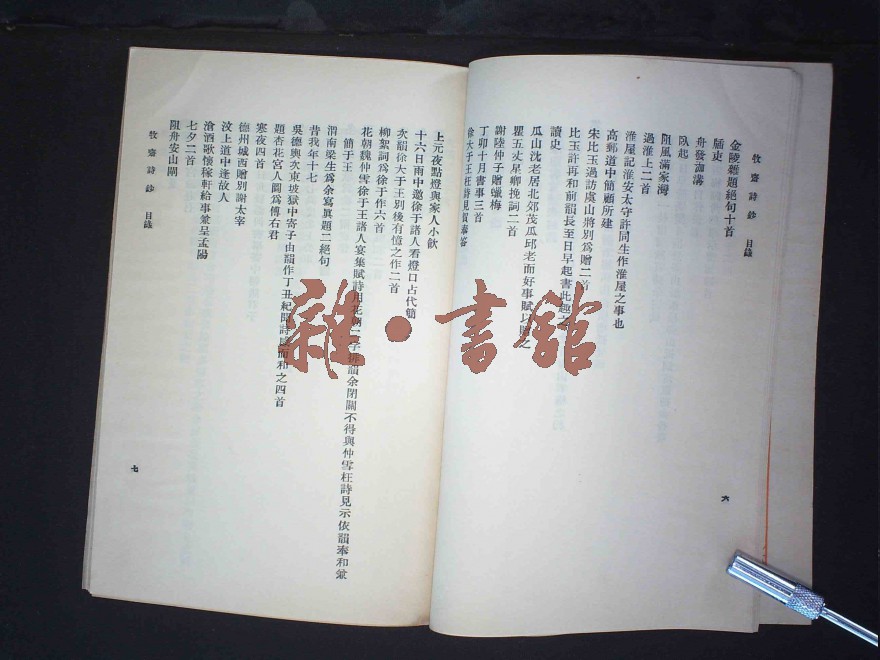 牧齋詩鈔 目錄
金陵雜題絕句十首
舟發
臥起
阻風滿家灣
過淮上二首
淮屋記淮安太守許同生作淮屋之事也
高郵道中簡顧所建
宋比玉過訪虞山將別爲贈二首
比玉許再和前韻長至日早起書此趣之
讀史
瓜山沈老居北郊茂瓜邱老而好事賦以之
瞿五丈星卿挽詞二首
謝陸仲子贈蠟梅
丁卯十月書事三首
徐大于王枉詩見賀奉答
六
上元夜點燈與家人小飲
十六日雨中邀徐于諸人看燈口占代簡
次韻徐大于王別後有憶之作二首
柳絮詞爲徐于作六首
花朝魏仲雪徐于王諸人宴集賦詩用花朝二字韻余閉關不得與仲雪枉詩見示依韻奉和兼
簡于王
渭南梁生爲余寫眞題二絕句
昔我年十七
吳德輿次東坡獄中寄子由韻作丁丑紀聞詩而和之四首
題杏花宮人圖爲傅右君
寒夜四首
德州城西贈別謝太宰
汶上道中逢故人
滄酒歌懷稼軒給事兼呈孟陽
七夕二首
阻舟安山閘
牧齋詩鈔 目錄
七
雜·書館